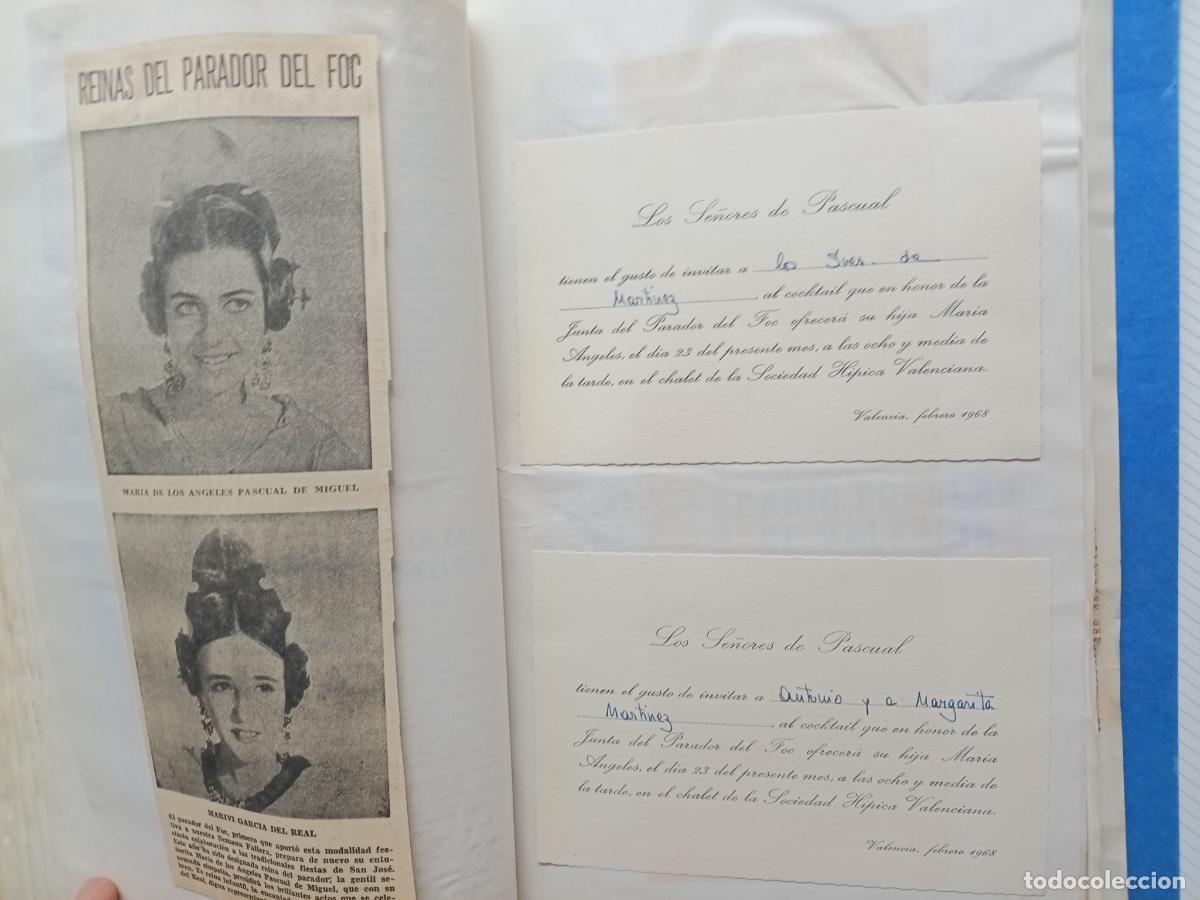 REINAS DEL PARADOR DEL FOC
MARIA DE LOS ANGELES PASCUAL DE MIGUEL
MARIVI GARCIA DEL REAL
El parador del Foc, primero que aportó esta modalidad fes-
tiva a nuestra Semana Fallera, prepara de nuevo su entu-
siasta colaboración a las tradicionales fiestas de San José.
Este año ha sido designada reina del parador, la gentil se-
ñorita María de los Angeles Pascual de Miguel, que con su
acusada simpatía, presidirá los brillantes actos que se cele-
bren. Es reina infantil, la
del Real, digna
Los Señores de Pascual
tienen el gusto de invitar a los Sres. de
Martinez, al cocktail que en honor de la
Junta del Parador del Foc ofrecerá su hija Maria
Angeles, el dia 23 del presente mes, a las ocho y media de
la tarde, en el chalet de la Sociedad Hípica Valenciana.
Valencia, febrero 1968
Los Señores de Pascual
tienen el gusto de invitar a Antonio y a Margarita
Martinez, al cocktail que en honor de la
Junta del Parador del Foc ofrecerá su hija Maria
Angeles, el dia 23 del presente mes, a las ocho y media de
la tarde, en el chalet de la Sociedad Hípica Valenciana.
Valencia, febrero 1968
todocoleccion